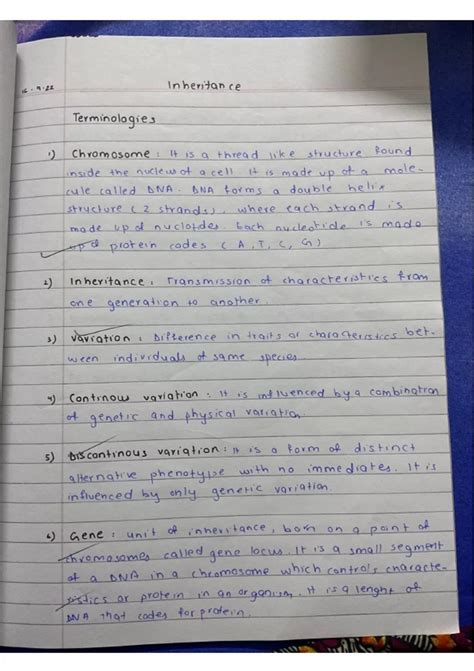 Inheritance
Terminologies
1) Chromosome : It is a thread like structure found
inside the nucleus of a cell. It is made up of a mole-
cule called DNA. DNA forms a double helix
structure (2 strands), where each strand is
made up of nuclotides. Each nucleotide is made
up of protein codes (A, T, C, G)
2) Inheritance : Transmission of characteristics from
one generation to another.
3) Variation : Difference in traits or characteristics bet-
ween individuals of same species.
4) Continous variation : It is influenced by a combination
of genetic and physical variation.
5) Discontinous variation : It is a form of distinct
alternative phenotype with no immediates. It is
influenced by only genetic variation.
6) Gene : unit of inheritance, born on a point of
chromosomes called gene locus. It is a small segment
of a DNA in a chromosome which controls characte-
ristics or protein in an organism. It is a lenght of
DNA that codes for protein.